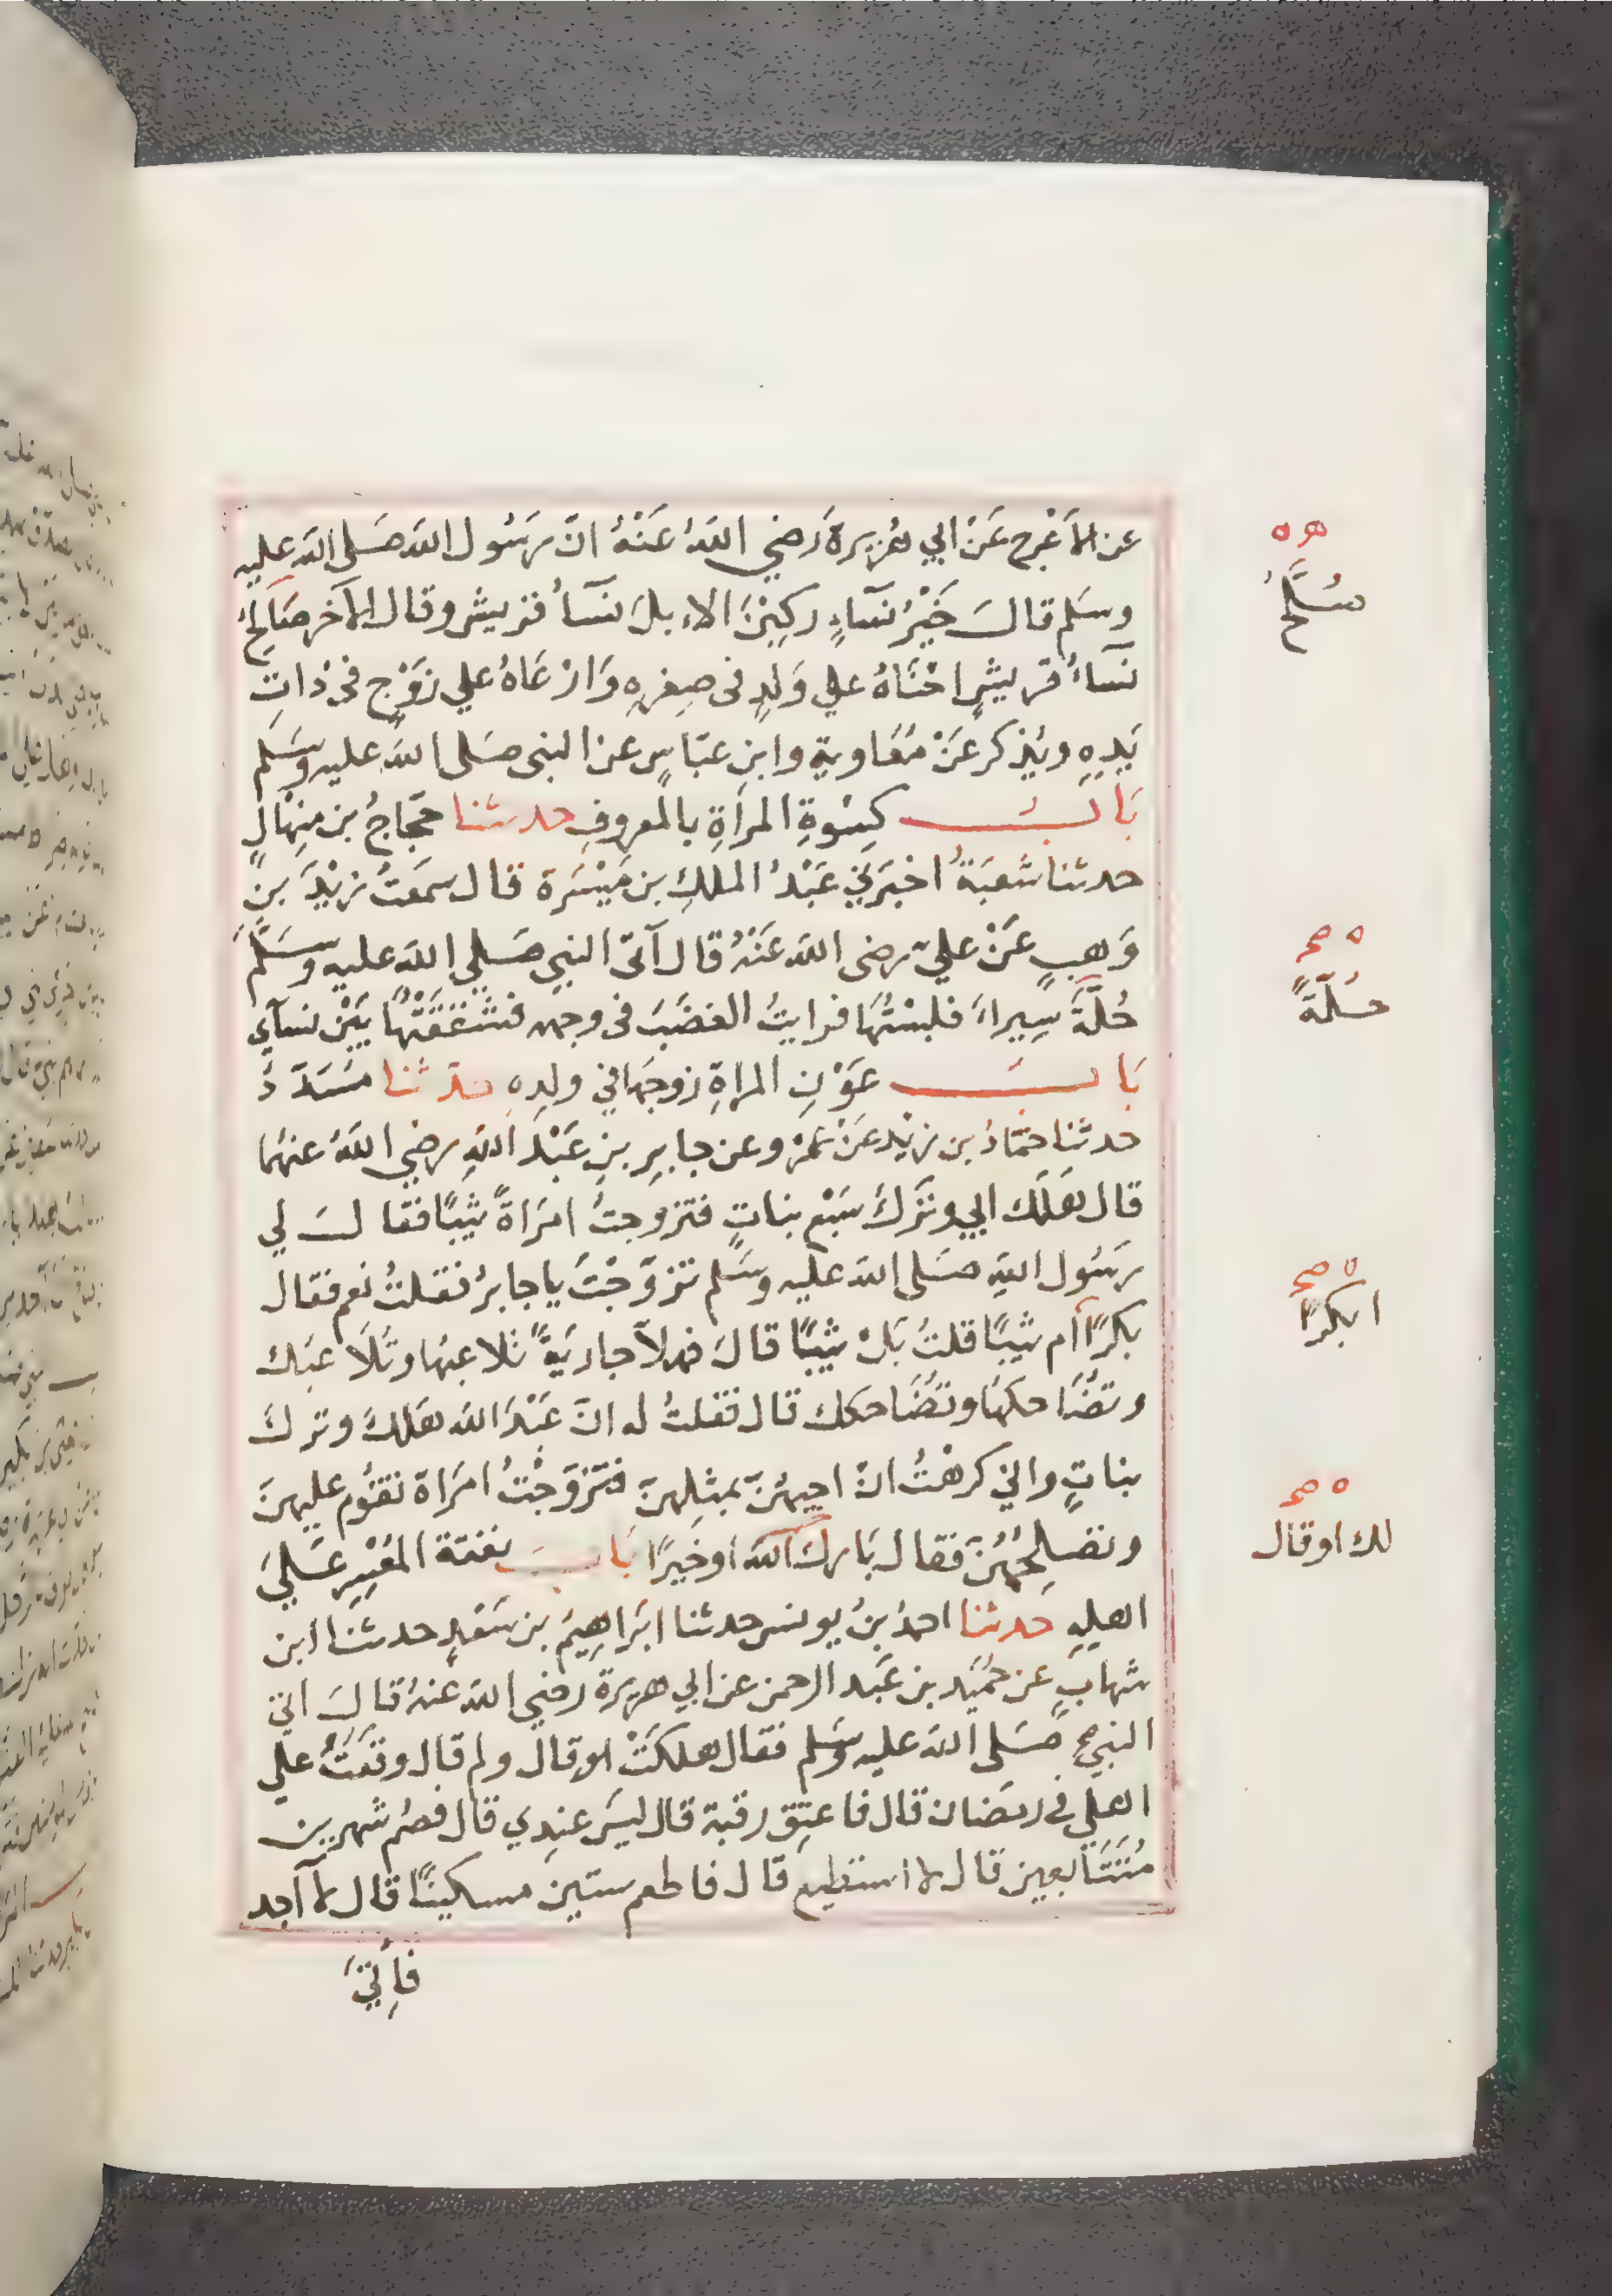 عن الاَعْرج عَنْ ابي هُريرةَ رَضي اللهُ عَنْهُ انّ رسُول الله صَلى الله عليه
وسَلم قالَ خَيْرُ نسآءٍ ركِبْنَ الاءِبلَ نسَآءُ قريش وقال الآخر صَالِحُ
نسآءُ قريشٍ احْنَاهُ علي وَلدٍ فى صِغرِهِ وَارْعَاهُ علي زَوْجٍ فى ذاتِ
يَدِهِ ويُذكر عَنْ مُعَاوية وابنِ عبّاسٍ عن النبى صَلى الله عليه وسَلم
بَابُ كِسْوةِ المرأةِ بالمعروفِ حدثنا حجّاجُ بن مِنهْالٍ
حدثنا شعبَةُ اخبَرَني عَبْدُ الملكِ بن مَيْسَرَة قال سمَعتُ زيْدَ بنَ
وَهبٍ عَنْ عليّ رضى الله عَنْهُ قال آتىَ النبي صَلي الله عليه وسَلّم
حُلّةَ سِيراءَ فلبسْتُهَا فرايتُ الغضَبَ فى وجهه فشَقَقْتُهَا بَيْن نسآي
بَابُ عَوْنِ المراةِ زوجَها في ولدِهِ حدّثنا مسَدّدُ
حدثنا حَمّادُ بن زيْد عَنْ عَمْرو عن جابِرِ بنِ عَبْد اللهِ رضي اللهُ عنهُما
قال هَلَك ابي وتَرَكَ سَبْع بناتٍ فتزوجتُ امرَاةً ثيّبًا فقالَ لي
رسُول اللهِ صَلى الله عليه وسَلم تزوّجْتَ يا جابرُ فقلتُ نعم فقال
بكرًا أم ثيبًا قلتُ بَلْ ثيّبًا قالَ فهلاّ جاريَةً تلاعبُها وتُلَاعبُك
وتضَاحكهَا وتضَاحكك قال فقلتُ له انّ عَبْدَ الله هَلكَ وتركَ
بناتٍ واني كرهْتُ انْ اجيهُنّ بمثلِهنّ فتزوّجْتُ امرَاة تقُوم عليهنّ
وتصْلِحُهُنّ فقال بَاركَ الله اوخَيرًا بَابُ نفقة المُعْسِرِ عَليَ
اهلِهِ حَدثنا احمدُ بنُ يونس حدثنا ابَراهِيمُ بن سَعْدٍ حدثنا ابن
شهابٍ عن حُمَيْد بن عَبد الرحمن عن ابي هريرة رضي الله عنهُ قالَ اتى
النبي صَلى الله عليه وسَلم فقال هلكَتْ او قال ولم قال وقعَتُ علي
اهلي في رمَضان قال فاعتِق رقبة قال ليسَ عندِي قال فصُم شهرين
مُتتَابعين قال لا استطيع قال فاطعم ستين مسكينًا قال لا آجد
فأُتِيَ
ه ه
صُلَّحُ
ه صح
حُلّةً
ه صح
ابكرًا
ه صح
لك اوقال